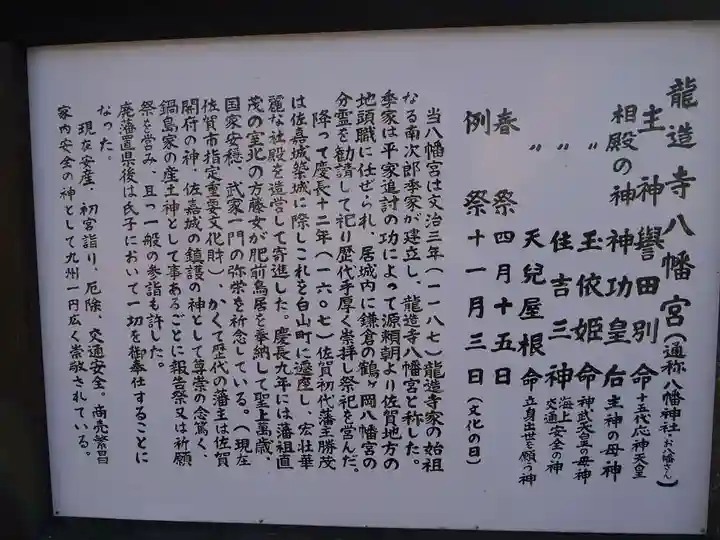 龍造寺八幡宮(通称八幡神社)お八幡さん
主神 誉田別命 十五代応神天皇
相殿の神 神功皇后 主神の母神
〃 玉依姫命 神武天皇の母神
〃 住吉三神 海上交通安全の神
〃 天児屋根命 立身出世を願う神
春祭 四月十五日
例祭 十一月三日(文化の日)
当八幡宮は文治三年(一一八七)龍造寺家の始祖
なる南次郎季家が建立し、龍造寺八幡宮と称した。
季家は平家追討の功によって源頼朝より佐賀地方の
地頭職に任ぜられ、居城内に鎌倉の鶴ヶ岡八幡宮の
分霊を勧請して祀り歴代手厚く崇拝し祭祀を営んだ。
降って慶長十二年(一六〇七)佐賀初代藩主勝茂
は佐嘉城築城に際しこれを白山町に遷座し、宏壮華
麗な社殿を造営して寄進した。慶長九年には藩祖直
茂の室北の方藤女が肥前鳥居を奉納して聖上萬歳、
国家安穏、武家一門の弥栄を祈念している。(現在
佐賀市指定重要文化財)、かくて歴代の藩主は佐賀
開府の神、佐嘉城の鎮護の神として尊崇の念篤く、
鍋島家の産土神として事あるごとに報告祭又は祈願
祭を営み、且つ一般の参詣も許した。
廃藩置県後は氏子において一切を御奉仕することに
なった。
現在安産、初宮詣り、厄除、交通安全。商売繁昌
家内安全の神として九州一円広く崇敬されている。